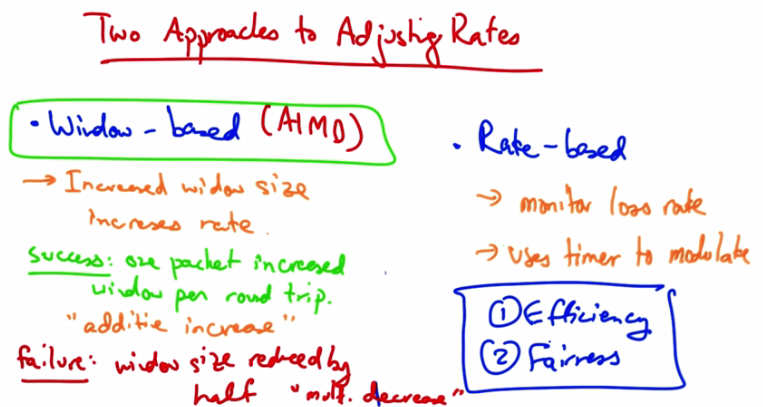 Two Approaches to Adjusting Rates
• Window-based (AIMD)
→ Increased widow size
increases rate.
success: one packet increased
window per round trip.
"additie increase"
failure: window size reduced by
half "mult. decrease"
• Rate-based
→ monitor loss rate
→ uses timer to modulate
① Efficiency
② Fairness